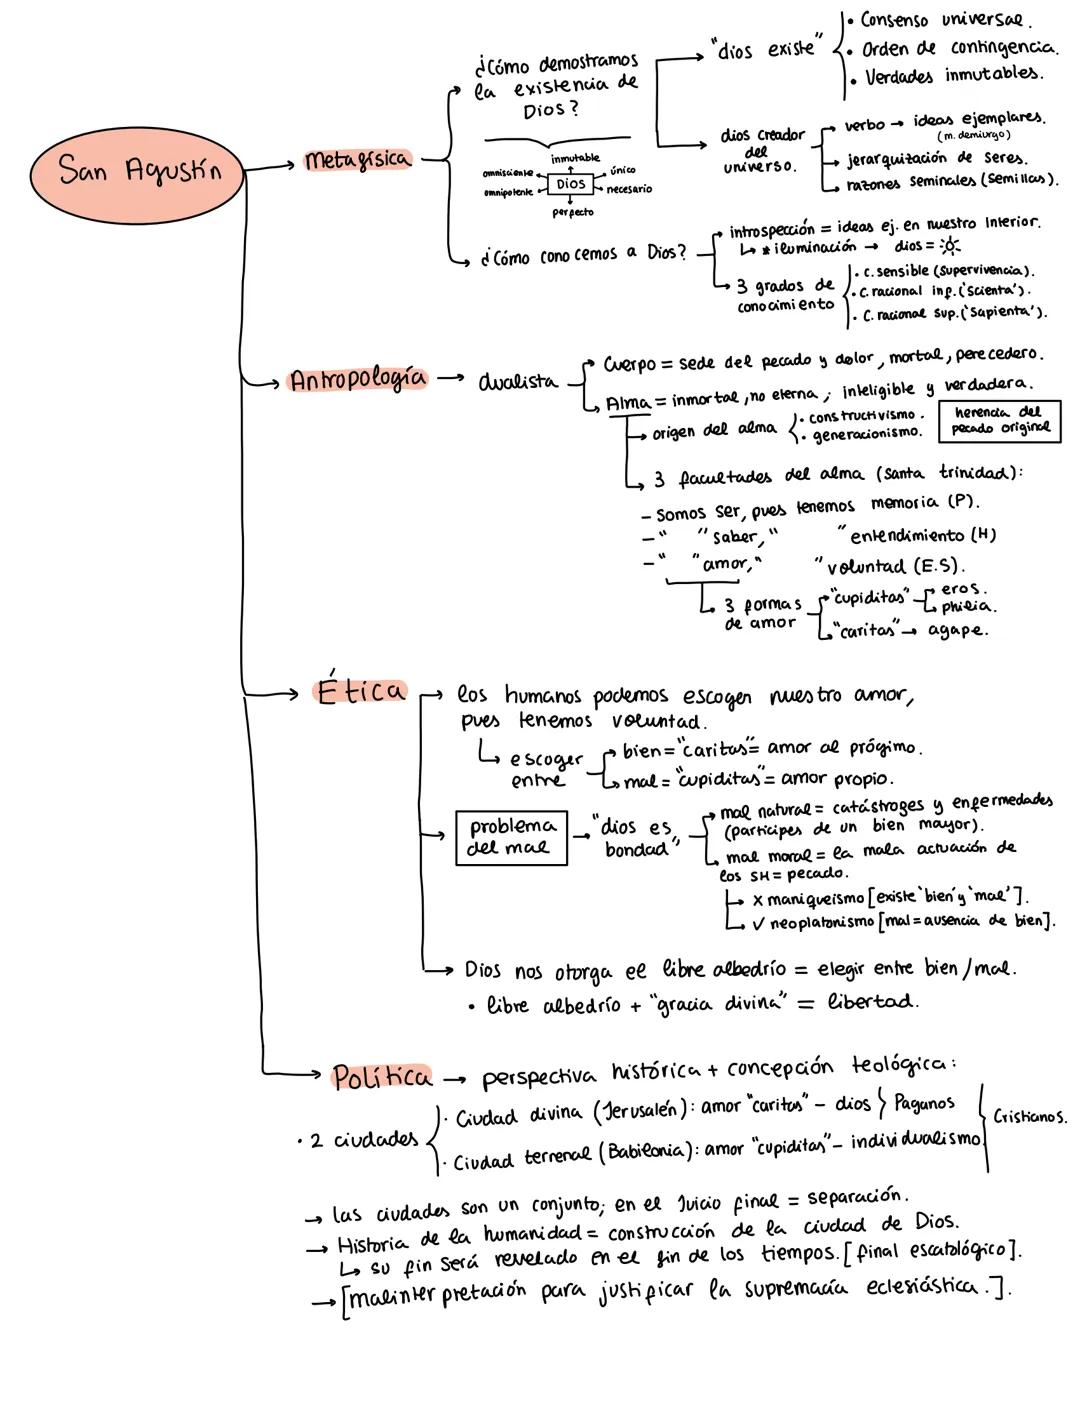 San Agustín
Metafísica
¿Cómo demostramos
la existencia de
Dios?
inmutable
omnisciente
único
omnipotente
Dios
necesario
perfecto
"dios existe"
• Consenso universal.
• Orden de contingencia.
• Verdades inmutables.
dios creador
del
universo.
verbo → ideas ejemplares.
(m. demiurgo)
jerarquización de seres.
razones seminales (semillas).
¿Cómo conocemos a Dios?
introspección = ideas ej. en nuestro interior.
↳ * iluminación → dios =
3 grados de
conocimiento
• c. sensible (supervivencia).
• c. racional inf. ('scienta').
• C. racional sup. ('sapienta').
Antropología → dualista
Cuerpo = sede del pecado y dolor, mortal, perecedero.
Alma = inmortal, no eterna, inteligible y verdadera.
→ origen del alma
• constructivismo.
• generacionismo.
herencia del
pecado original
3 facultades del alma (santa trinidad):
- Somos ser, pues tenemos memoria (P).
- " " saber, " " entendimiento (H)
- " " amor, " " voluntad (E.S).
3 formas
de amor
"cupiditas"
eros.
philia.
"caritas" → agape.
Ética
los humanos podemos escoger nuestro amor,
pues tenemos voluntad.
escoger
entre
bien = "caritas" = amor al prógimo.
mal = "cupiditas" = amor propio.
problema
del mal
"dios es
bondad"
mal natural = catástrofes y enfermedades
(partícipes de un bien mayor).
mal moral = la mala actuación de
los SH = pecado.
x maniqueísmo [existe 'bien' y 'mal'].
✓ neoplatonismo [mal = ausencia de bien].
Dios nos otorga el libre albedrío = elegir entre bien/mal.
• libre albedrío + "gracia divina" = libertad.
Política → perspectiva histórica + concepción teológica:
• 2 ciudades
• Ciudad divina (Jerusalén): amor "caritas" - dios } Paganos
• Ciudad terrenal (Babilonia): amor "cupiditas" - individualismo
Cristianos.
→ las ciudades son un conjunto; en el Juicio final = separación.
→ Historia de la humanidad = construcción de la ciudad de Dios.
↳ su fin será revelado en el fin de los tiempos. [final escatológico].
→ [malinterpretación para justificar la supremacía eclesiástica.].